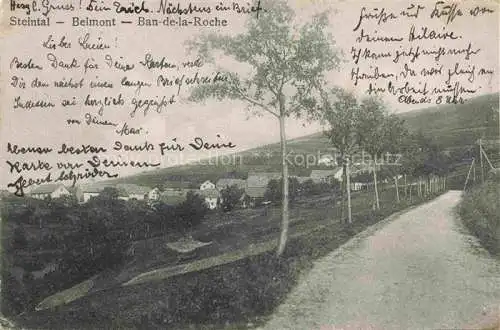 Herzl. Gruss! Dein Erich. Nächstens mehr
Steintal - Belmont - Ban-de-la-Roche
Lieber Lucien!
Besten Dank für Deine Karten, werde
Dir den nächst einen langen Brief schreiben
Indessen sei herzlich gegrüsst
von Deinem
Max.
Ebenso besten Dank für Deine
Karte von Deinem
Gebert Schröder
Grüsse und Küsse von
deinem Hilaire,
Ich kann jetzt nicht mehr
schreiben, da wir gleich an
die Arbeit müssen
Abends 8 Uhr
Copyright
Protection